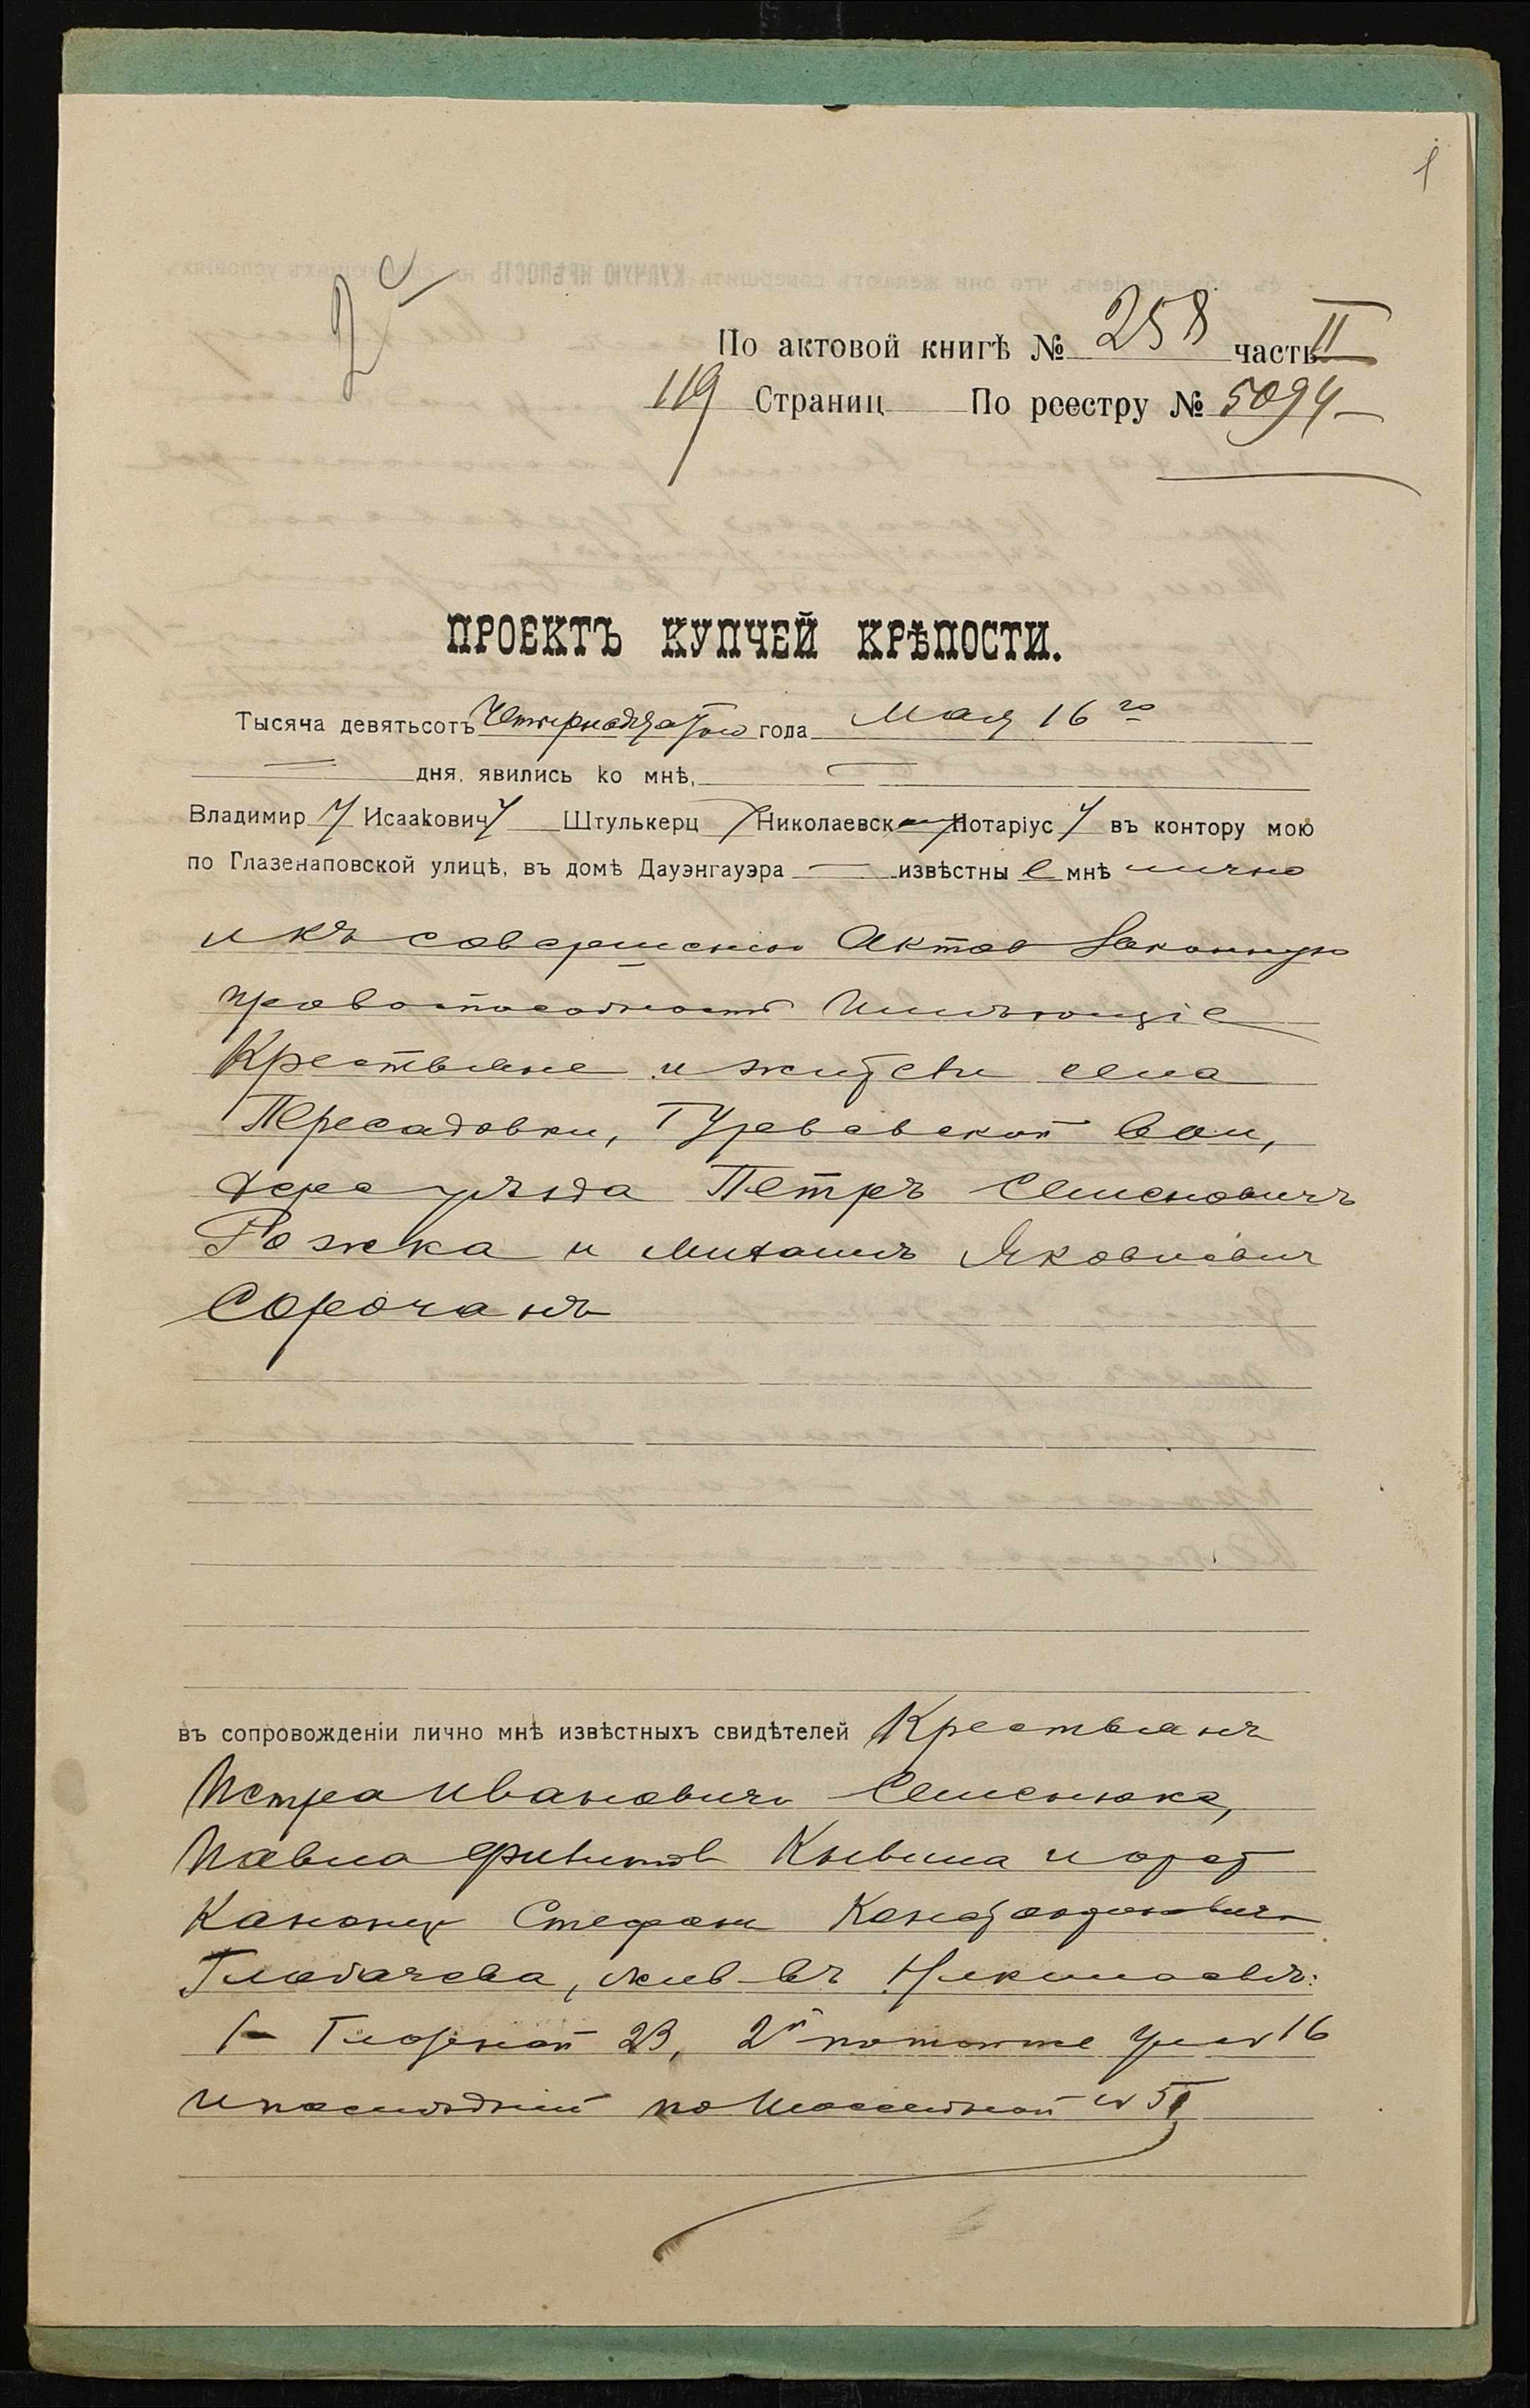 1
2
По актовой книгѣ № 258 часть II
119 Страниц По реестру № 5094
ПРОЕКТЪ КУПЧЕЙ КРѢПОСТИ.
Тысяча девятьсотъ Четырнадцатого года Мая 16го
дня, явились ко мнѣ,
Владимиру Исааковичу Штулькерцу Николаевскому Нотаріусу въ контору мою
по Глазенаповской улицѣ, въ домѣ Дауэнгауэра извѣстные мнѣ лично
и къ совершенію Актов законную
правоспособность Имѣющіе
Крестьяне и жители села
Пересадовки, Гурьевской вол,
Херс уѣзда Петръ Семеновичъ
Рожка и Михаилъ Яковлевич
Сорочанъ
въ сопровожденіи лично мнѣ извѣстныхъ свидѣтелей Крестьянъ
Петра Ивановича Семенюка,
Павла и
Стефана Константиновича
жив въ Николаевѣ:
1 23, 2й по той же ул № 16
и послѣдній по № 51